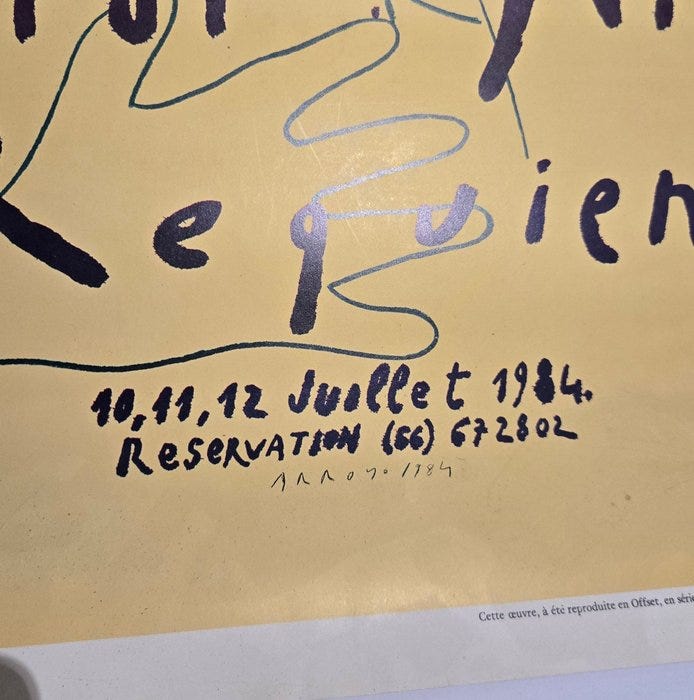 Requien
10,11,12 Juillet 1984.
RESERVATION (66) 672802
ARROYO 1984
Cette œuvre, à été reproduite en Offset, en série